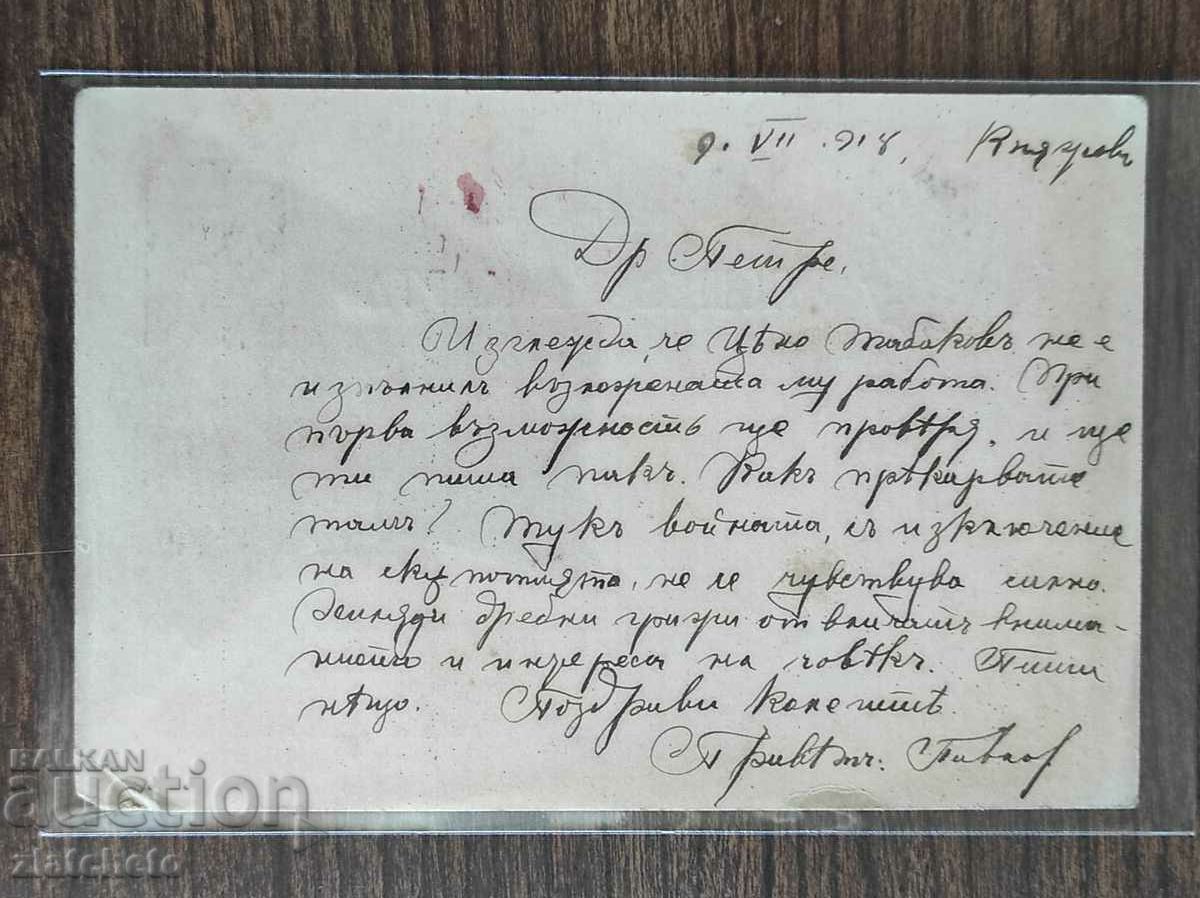 9. VII. 918, Княжевъ
Др. Петре,
Изглежда, че Цѣно Табаковъ не е
изпълнилъ възложената му работа. При
първа възможность ще провѣря, и ще
ти пиша пакъ. Какъ прѣкарвате
тамъ? Тукъ войната, съ изключение
на скѫпотията, не се чувствува силно.
дребни грижи отвличатъ внима-
нието и интереса на човѣкъ. Пиши
нѣщо. Поздрави колегитѣ.
Привѣтъ:
BALKAN
auction
zlatcheto